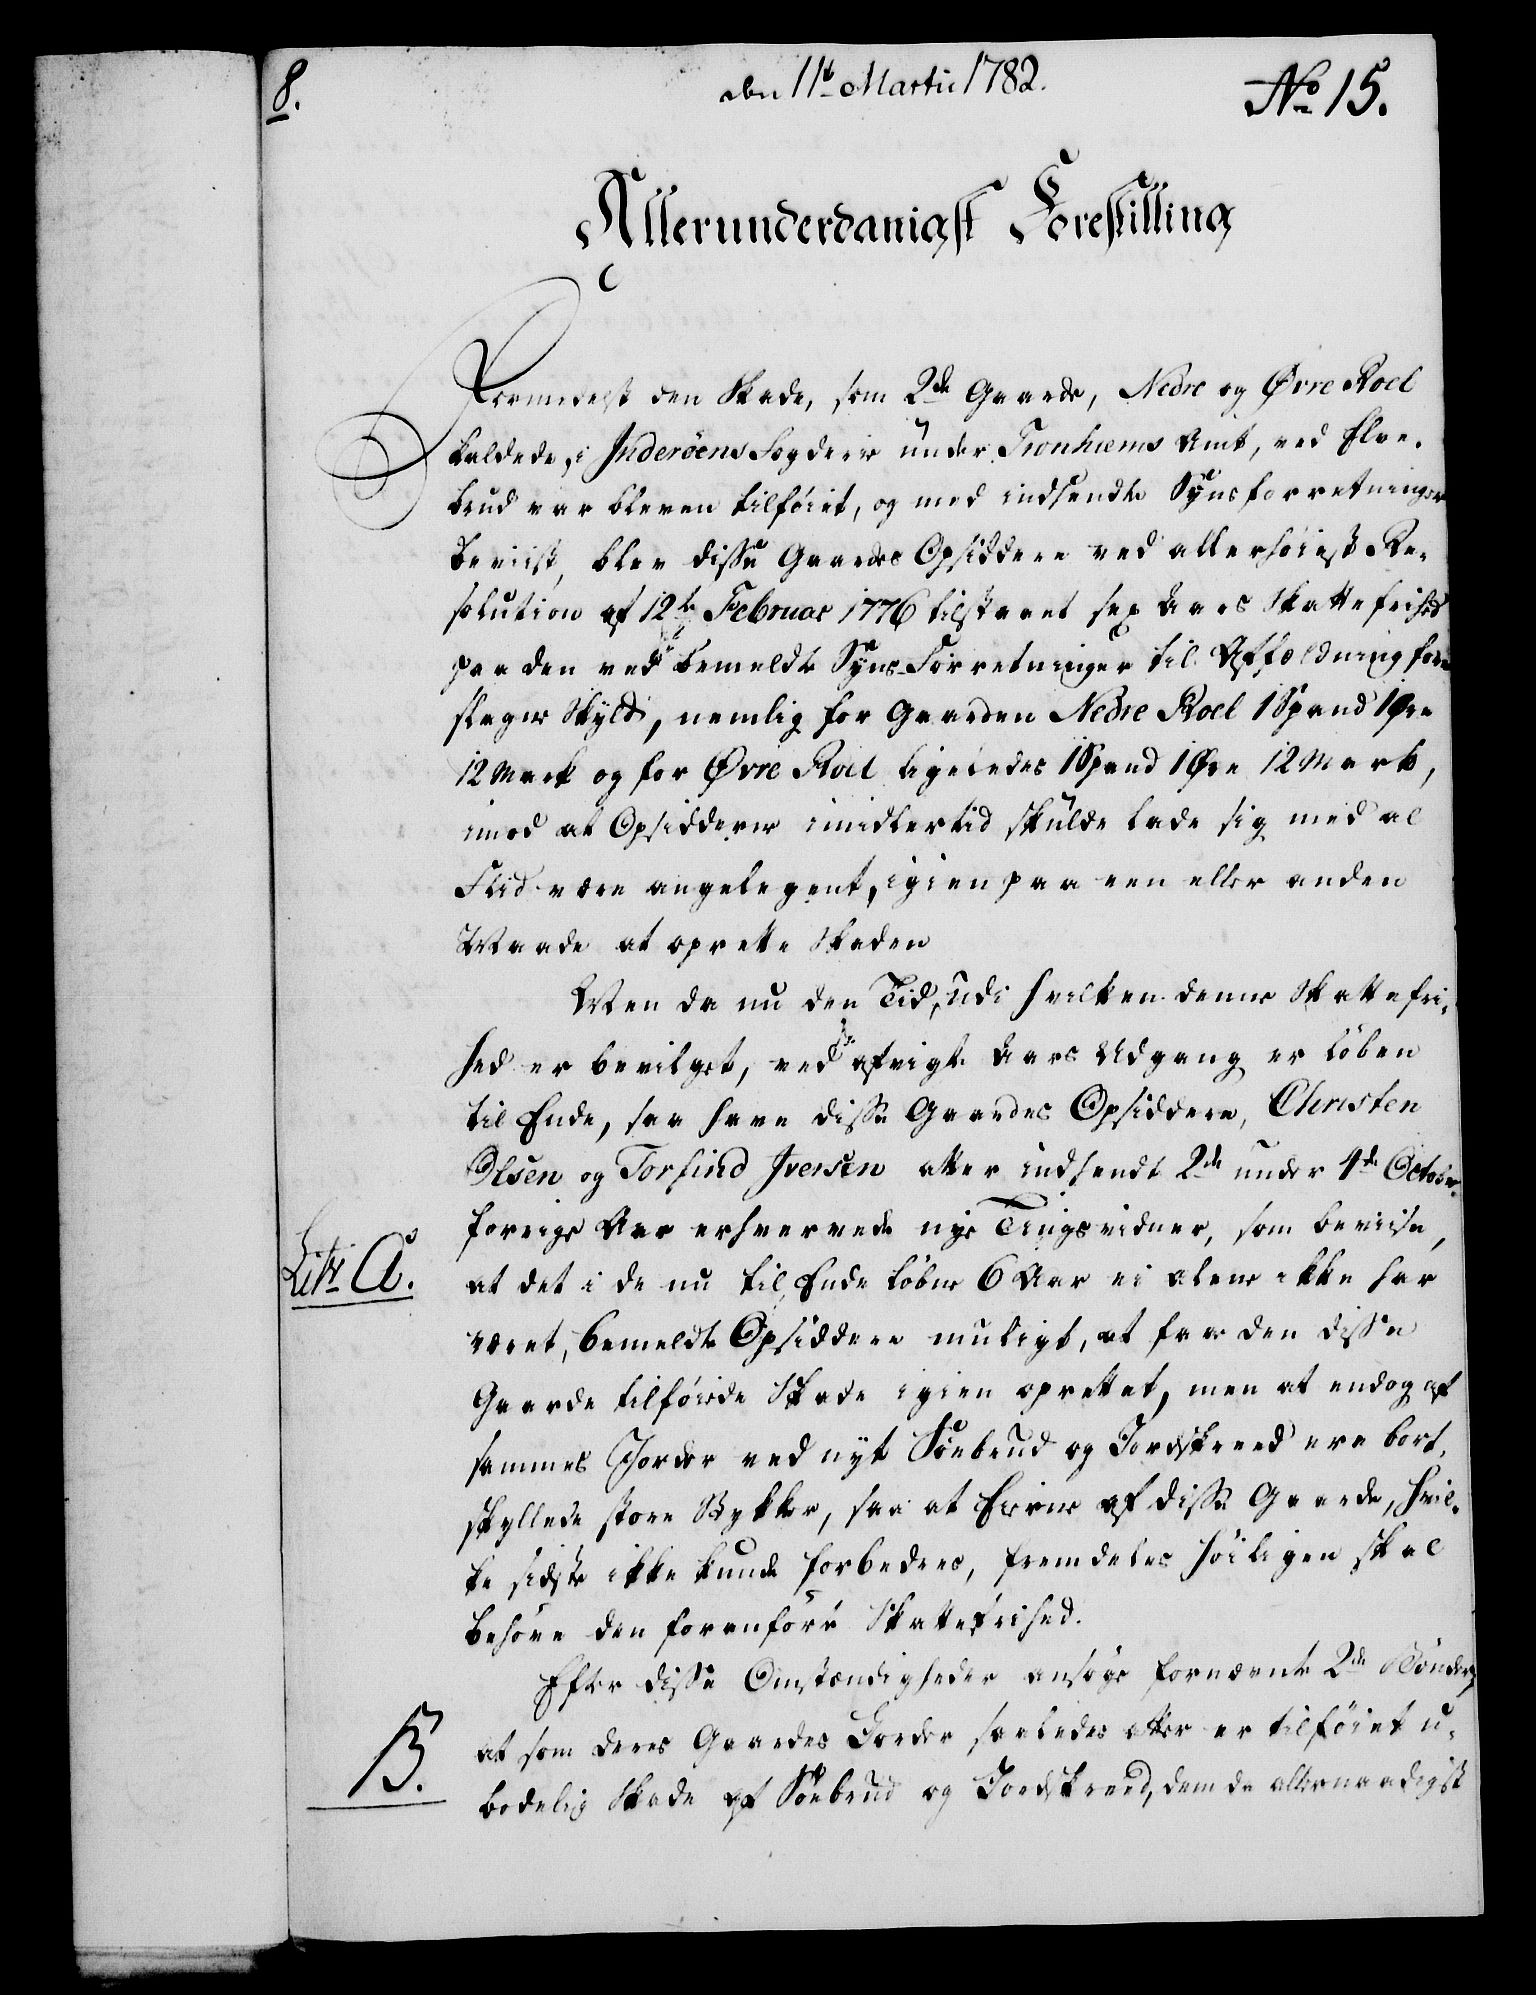 8.
den 11t Martii 1782.
No 15.
Allerunderdanigst Forestilling
Formedelst den Skade, som 2de Gaarde, Nedre og Øvre Roel
kaldede, i Inderöens Fogderie under Tronhiems Amt, ved Elve-
brud var bleven tilföiet, og med indsendte Synsforretninger
beviist, blev disse Gaardes Opsiddere ved allerhöiest Re-
solution af 12te Februar 1776 tilstaaet sex Aars Skattefrihed
paa den ved bemeldte Syns-Forretninger til Affældning fore-
slagne Skyld, nemlig for Gaarden Nedre Roel 1 Spand 1 Øre
12 Mark og for Øvre Roel ligeledes 1 Spand 1 Øre 12 Mark,
imod at Opsidderne imidlertid skulde lade sig med al
Flid være angelegent, igien paa een eller anden
Maade at oprette Skaden
Men da nu den Tid, udi hvilken denne Skattefri-
hed er bevilget, ved afvigte Aars Udgang er löben
til Ende, saa have disse Gaardes Opsiddere, Christen
Olsen og Torfind Iversen atter indsendt 2de under 4de Octobr.
forrige Aar erhvervede nye Tingsvidner, som beviise,
Litr. A.
at det i de nu til Ende löbne 6 Aar ei alene ikke har
været, bemeldte Opsiddere muligt, at faae den disse
Gaarde tilföiede Skade igien oprettet, men at endog af
sammes Jorder ved nyt Söebrud og Jordskreed ere bort-
skyllede store Stykker, saa at Eierne af disse Gaarde, hvil-
ke sidste ikke kunde forbedres, fremdeles höiligen skal
behöve den foranförte Skattefrihed.
Efter disse Omstændigheder ansöge fornævnte 2de Bönder,
B.
at som deres Gaardes Jorder saaledes atter er tilföiet u-
bodelig Skade af Söebrud og Jordskreed, dem da allernaadigst